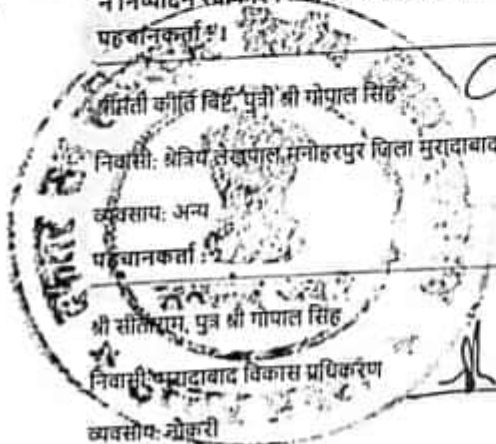 न निष्पादन स्वीकार
पहचानकर्ता : 1
श्रीमती कीर्ति बिष्ट, पुत्री श्री गोपाल सिंह
निवासी: श्रेत्रिय लेखपाल,मनोहरपुर जिला मुरादाबाद
व्यवसाय: अन्य
पहचानकर्ता : 2
श्री सीताराम, पुत्र श्री गोपाल सिंह
निवासी: मुरादाबाद विकास प्रधिकरण
व्यवसाय: नौकरी